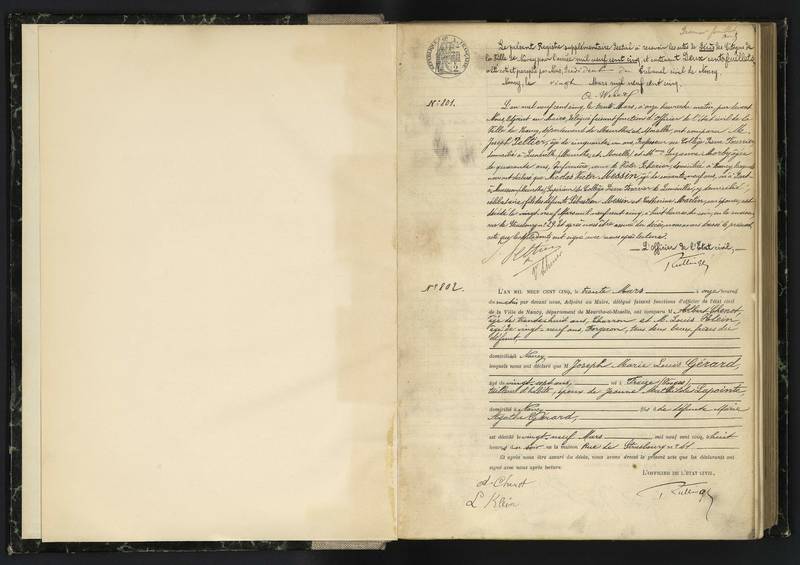 Le présent Registre supplémentaire destiné à recevoir les actes de Décès des Citoyens de
la Ville de Nancy pour l'année mil neuf cent cinq, et contenant Deux cents feuillets,
a été coté et paraphé par Nous, Président du Tribunal civil de Nancy.
Nancy, le vingt Mars mil neuf cent cinq.
RÉPUBLIQUE FRANÇAISE
N° 801.
L'an mil neuf cent cinq, le trente Mars, à onze heures du matin par devant
Nous, Adjoint au Maire, délégué faisant fonctions d'officier de l'état civil de la
Ville de Nancy, département de Meurthe-et-Moselle, ont comparu M.
Joseph Peltier, âgé de cinquante un ans, Professeur au Collège Pierre Fourier
domicilié à Lunéville, (Meurthe et Moselle) et Mme Suzanne
de quarante ans, veuve de Victor domiciliée à Nancy, lesquels
nous ont déclaré que Nicolas Victor Messin, âgé de soixante neuf ans, né à
Supérieur du Collège Pierre Fourier de Lunéville, y domicilié,
célibataire, fils des défunts Sébastien Messin et Catherine Martin, son épouse, est
décédé le vingt neuf Mars mil neuf cent cinq, à huit heures du soir, en la maison
rue de Strasbourg n° 29. Et après nous être assuré du décès, nous avons dressé le présent
acte que les déclarants ont signé avec nous après lecture.
L'officier de l'État civil,
N° 802.
L'AN MIL NEUF CENT CINQ, le trente Mars à onze heures
du matin par devant nous, Adjoint au Maire, délégué faisant fonctions d'officier de l'état civil
de la Ville de Nancy, département de Meurthe-et-Moselle, ont comparu M. Albert Chenot,
âgé de trente huit ans, Charron et M. Louis Klein
âgé de vingt-neuf ans, Forgeron, tous deux beaux frères du
défunt,
domiciliés à Nancy
lesquels nous ont déclaré que M Joseph Marie Louis Gérard,
âgé de vingt-sept ans, né à (Vosges)
tailleur d'habits, époux de Jeanne Mathilde Lapointe,
domicilié à Nancy fils de défunte Marie
Agathe Gérard,
est décédé le vingt-neuf Mars mil neuf cent cinq, à huit
heures du soir en la maison Rue de Strasbourg n° 61.
Et après nous être assuré du décès, nous avons dressé le présent acte que les déclarants ont
signé avec nous après lecture.
L'OFFICIER DE L'ÉTAT CIVIL,
A. Chenot
L Klein